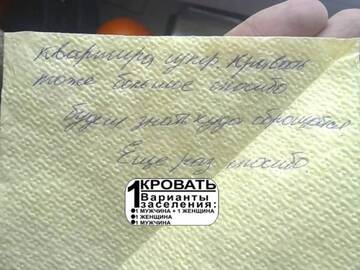 квартира супер. Кровать
тоже большое спосибо
будем знать куда оброщатся
Еще раз спосибо
1 КРОВАТЬ
Варианты
заселения:
1 МУЖЧИНА + 1 ЖЕНЩИНА
1 ЖЕНЩИНА
1 МУЖЧИНА